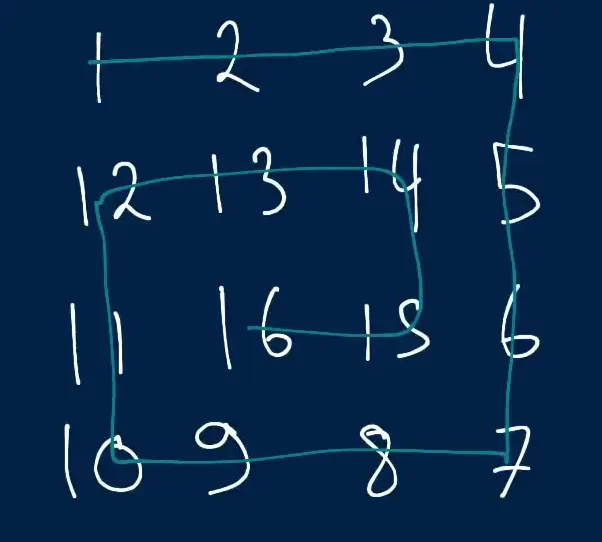 1 2 3 4
12 13 14 5
11 16 15 6
10 9 8 7